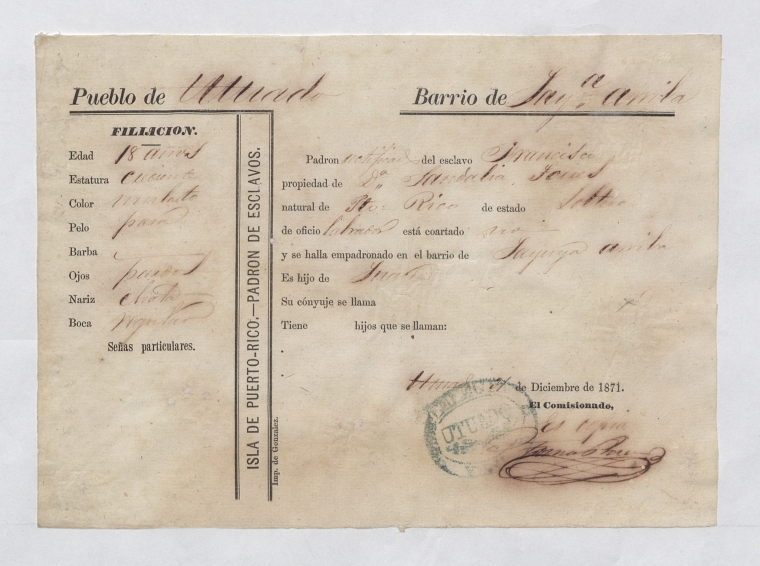 Pueblo de Utuado
Barrio de Jayª arriba
FILIACION.
Edad 18 años
Estatura
Color mulato
Pelo pasa
Barba
Ojos pardos
Nariz chata
Boca regular
Señas particulares.
ISLA DE PUERTO-RICO.—PADRON DE ESCLAVOS.
Imp. de Gonzalez.
Padron del esclavo Francisco
propiedad de Dª.
natural de Pto. Rico de estado Soltero
de oficio labrador está coartado no
y se halla empadronado en el barrio de Jayuya arriba
Es hijo de Juana
Su cónyuje se llama
Tiene hijos que se llaman:
Utuado de Diciembre de 1871.
El Comisionado,
es copia
UTUADO